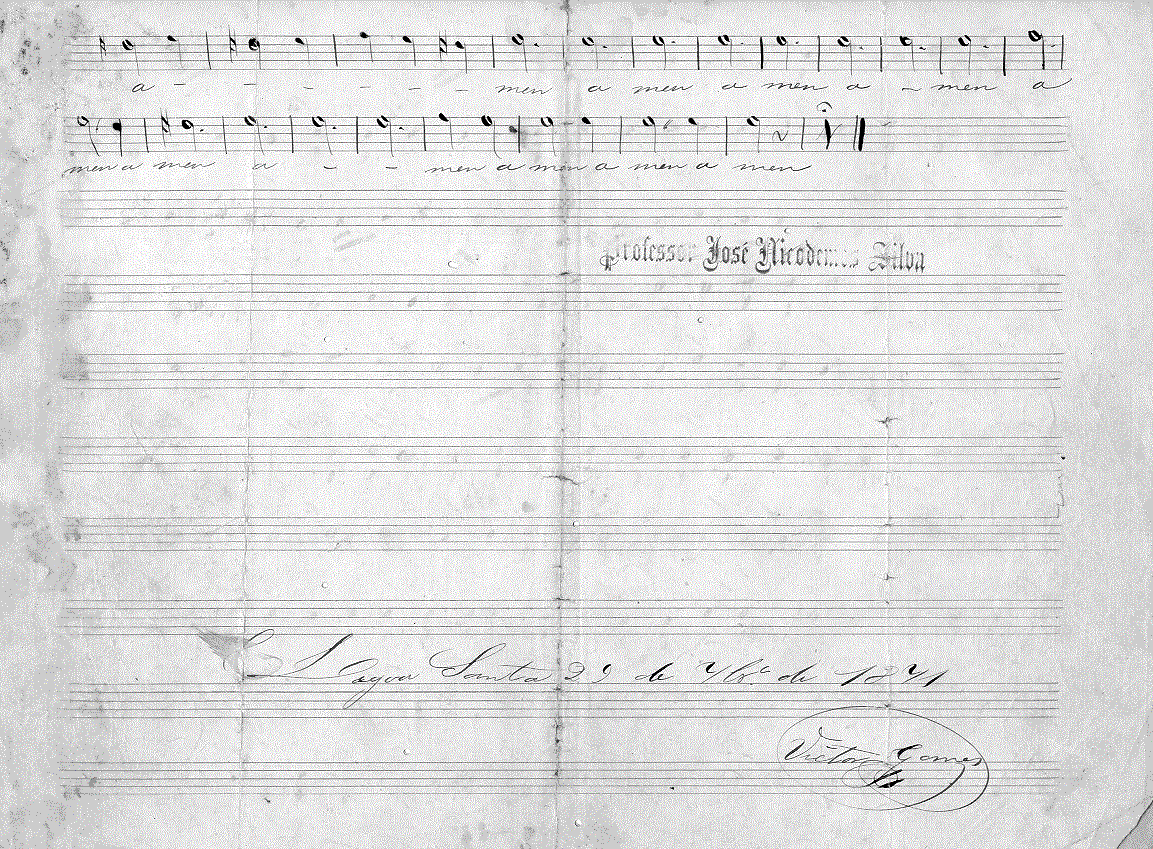 a - - - - - - men a men a men a - men a
men a men a - - men a men a men a men
Professor José Nicodemos Silva
Lagoa Santa 29 de 7br.º de 1871
Victor Gomes